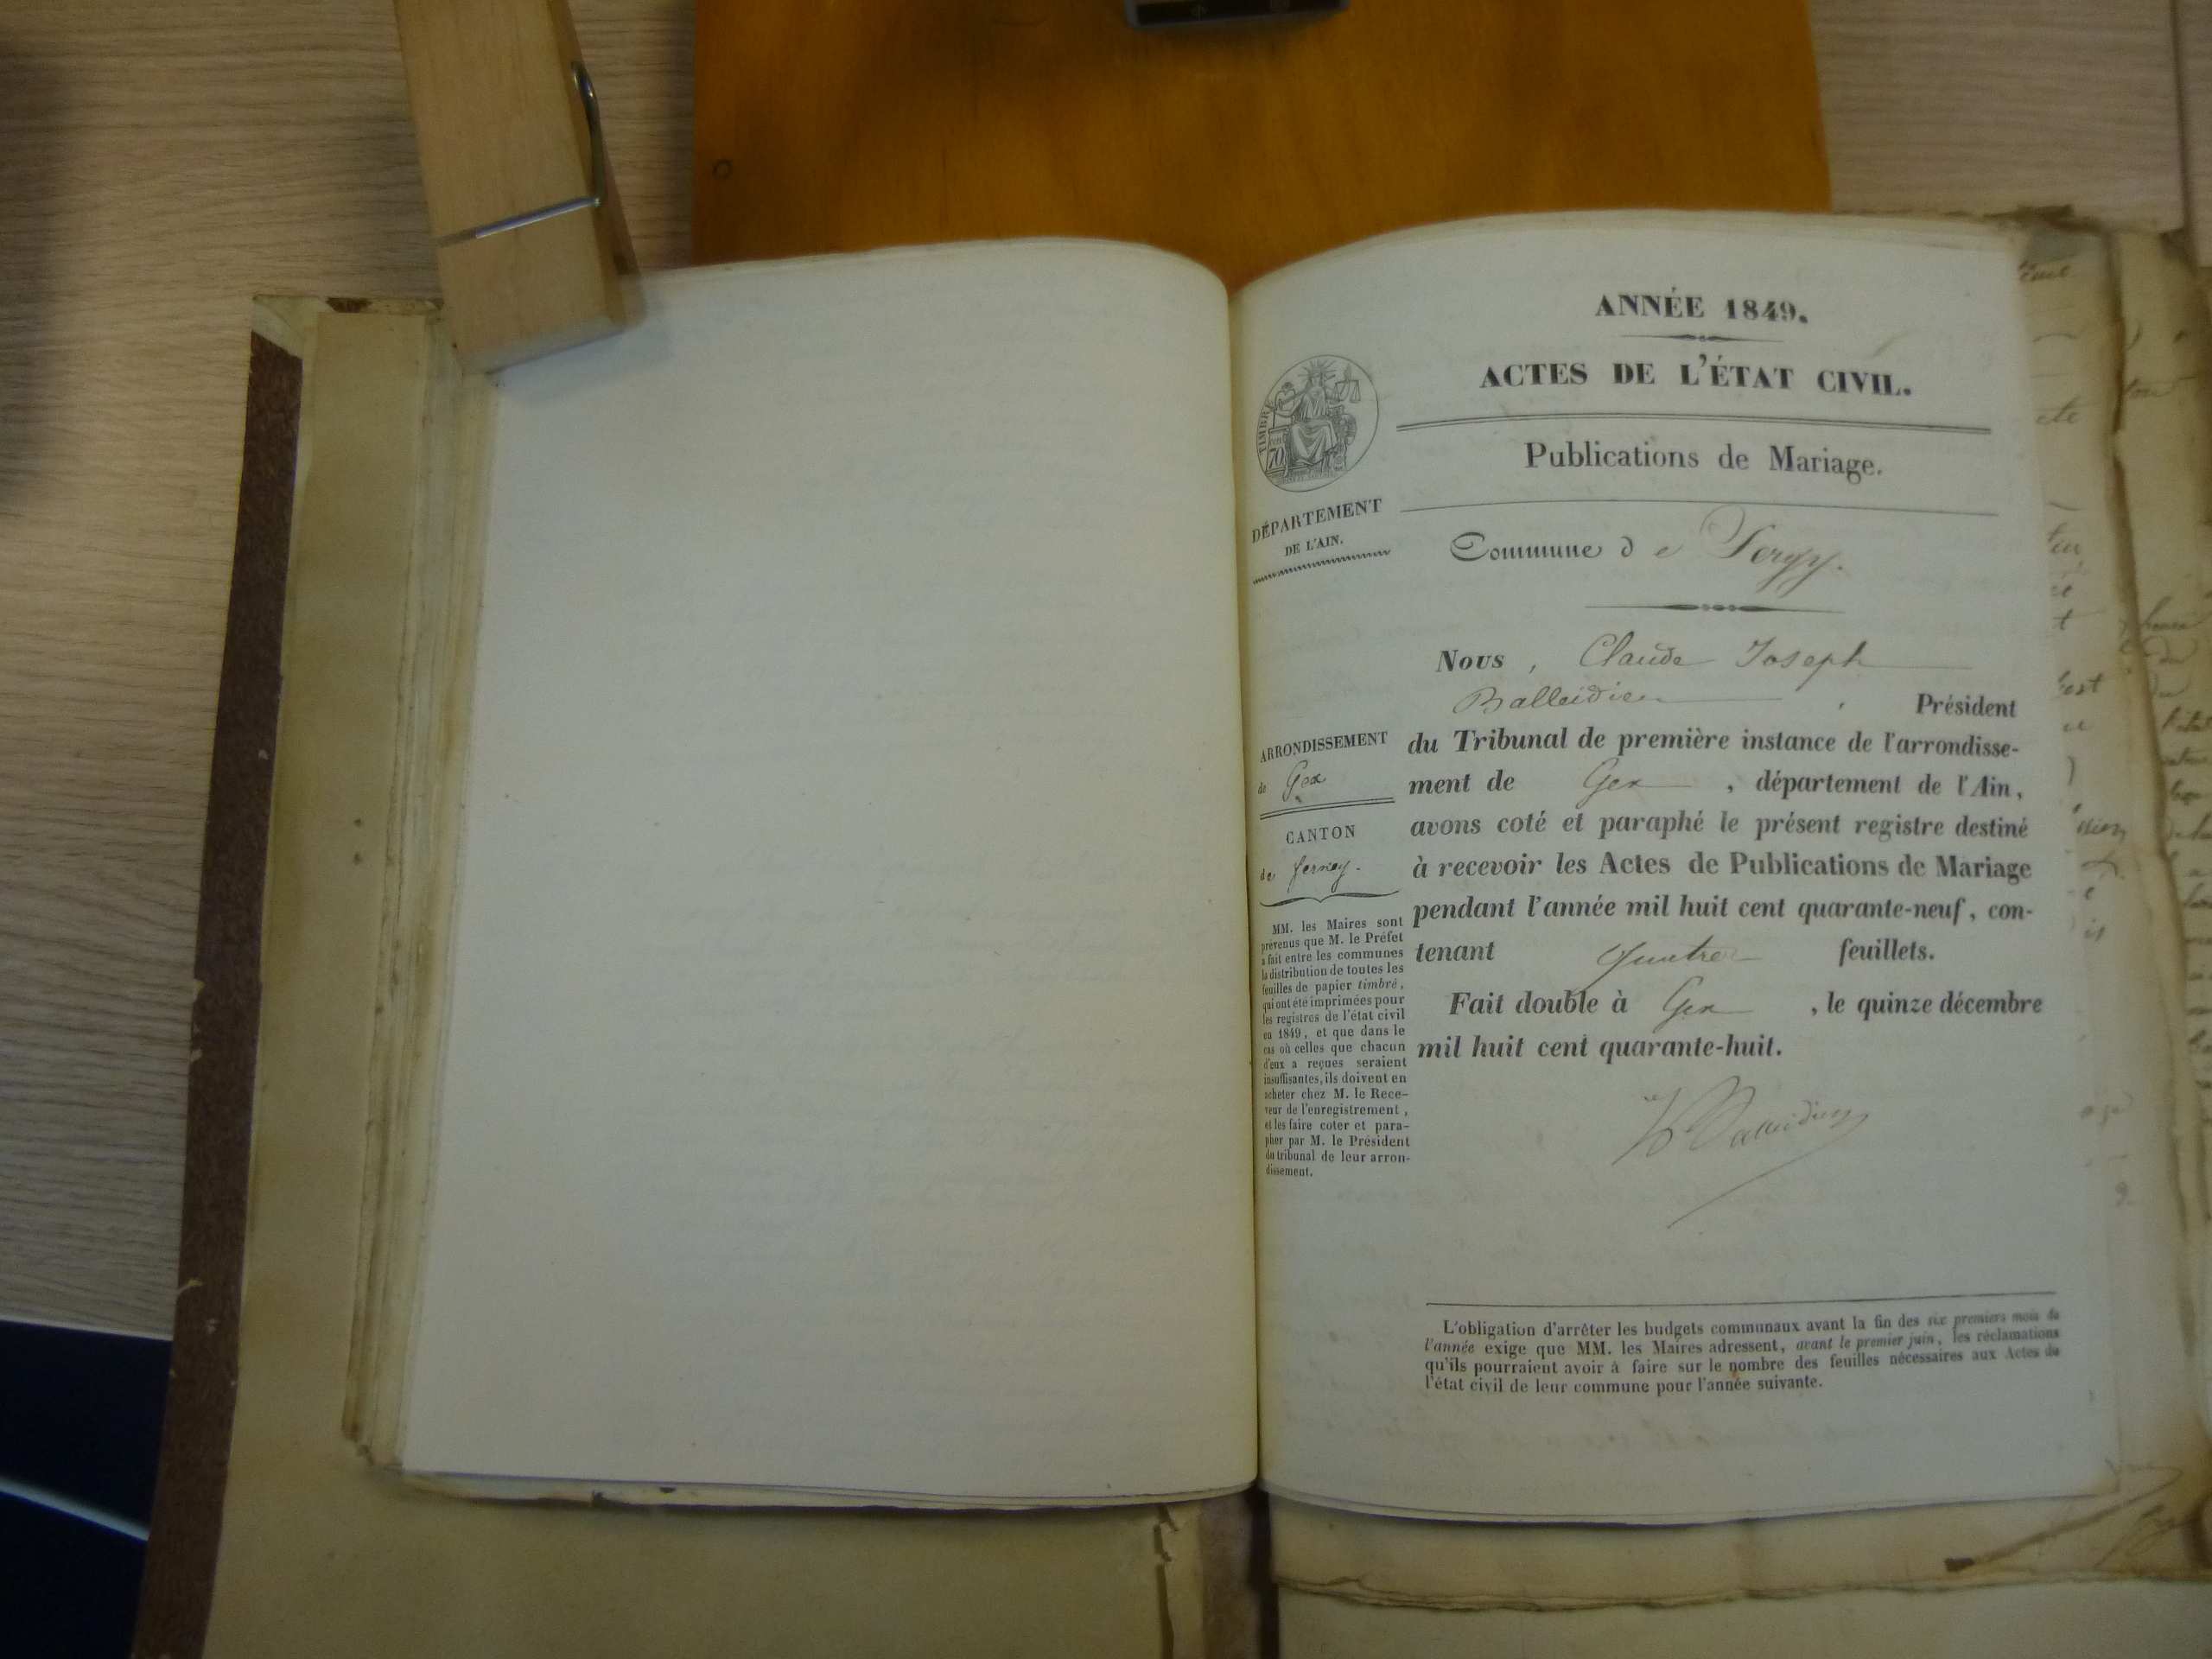 ANNÉE 1849.
ACTES DE L'ÉTAT CIVIL.
Publications de Mariage.
TIMBRE
70
DÉPARTEMENT
DE L'AIN.
Commune de Sergy.
Nous, Claude Joseph
Balleidier, Président
du Tribunal de première instance de l'arrondisse-
ment de Gex, département de l'Ain,
avons coté et paraphé le présent registre destiné
à recevoir les Actes de Publications de Mariage
pendant l'année mil huit cent quarante-neuf, con-
tenant quatre feuillets.
Fait double à Gex, le quinze décembre
mil huit cent quarante-huit.
Balleidier
ARRONDISSEMENT
de Gex
CANTON
de ferney.
MM. les Maires sont
prévenus que M. le Préfet
a fait entre les communes
la distribution de toutes les
feuilles de papier timbré,
qui ont été imprimées pour
les registres de l'état civil
en 1849, et que dans le
cas où celles que chacun
d'eux a reçues seraient
insuffisantes, ils doivent en
acheter chez M. le Rece-
veur de l'enregistrement,
et les faire coter et para-
pher par M. le Président
du tribunal de leur arron-
dissement.
L'obligation d'arrêter les budgets communaux avant la fin des six premiers mois de
l'année exige que MM. les Maires adressent, avant le premier juin, les réclamations
qu'ils pourraient avoir à faire sur le nombre des feuilles nécessaires aux Actes de
l'état civil de leur commune pour l'année suivante.